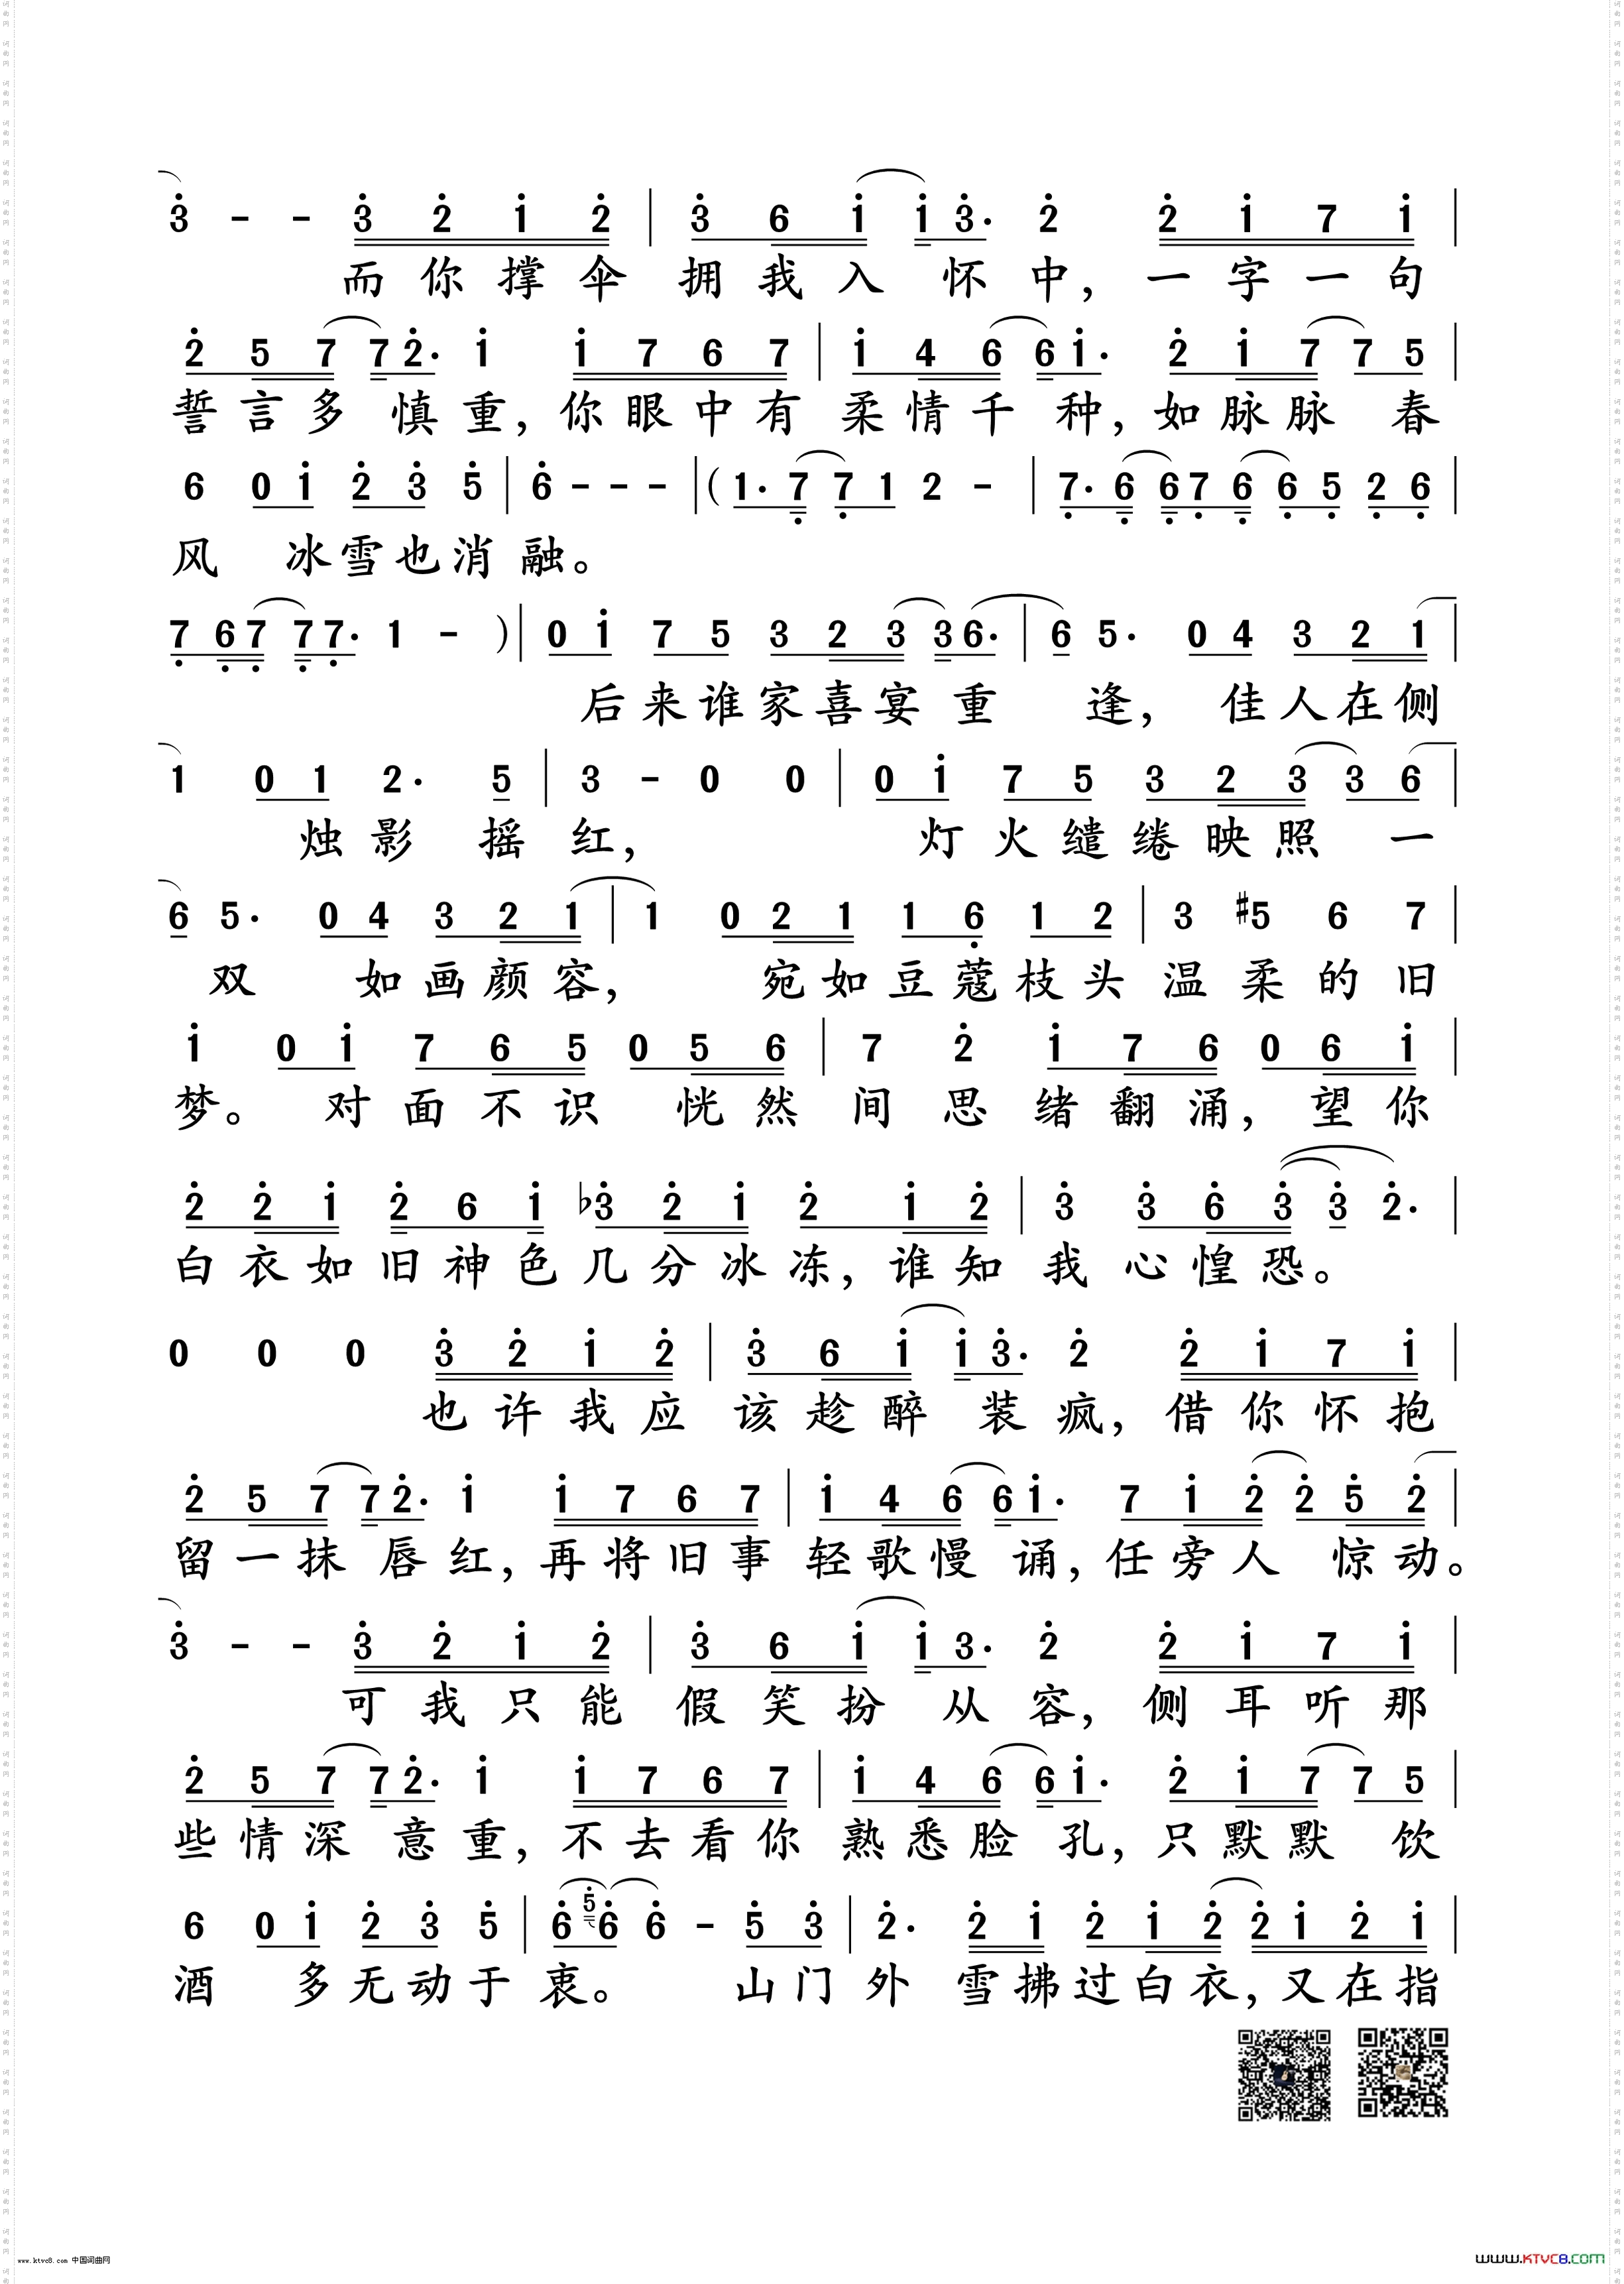 3 - - 3 2 1 2 | 3 6 1 1 3. 2 2 1 7 1 |
而你撑伞 拥我入 怀中，一字一句
2 5 7 7 2. 1 1 7 6 7 | 1 4 6 6 1. 2 1 7 7 5
誓言多 慎重，你眼中有 柔情千 种，如脉脉 春
6 0 1 2 3 5 | 6 - - - | ( 1. 7 7 1 2 - | 7. 6 6 7 6 6 5 2 6 |
风 冰雪也消融。
7 6 7 7 7. 1 - ) | 0 1 7 5 3 2 3 3 6. | 6 5. 0 4 3 2 1 |
后来谁家喜宴 重 逢，佳人在侧
1 0 1 2. 5 | 3 - 0 0 | 0 1 7 5 3 2 3 3 6 |
烛影 摇红， 灯火缱绻映照 一
6 5. 0 4 3 2 1 | 1 0 2 1 1 6 1 2 | 3 #5 6 7 |
双 如画颜容， 宛如豆蔻枝头 温柔的旧
1 0 1 7 6 5 0 5 6 | 7 2 1 7 6 0 6 1 |
梦。 对面不识 恍然 间思绪翻涌，望你
2 2 1 2 6 1 ♭3 2 1 2 1 2 | 3 3 6 3 3 2. |
白衣如旧神色几分冰冻，谁知 我心惶恐。
0 0 0 3 2 1 2 | 3 6 1 1 3. 2 2 1 7 1 |
也许我应 该趁醉 装疯，借你怀抱
2 5 7 7 2. 1 1 7 6 7 | 1 4 6 6 1. 7 1 2 2 5 2 |
留一抹 唇红，再将旧事 轻歌慢 诵，任旁人 惊动。
3 - - 3 2 1 2 | 3 6 1 1 3. 2 2 1 7 1 |
可我只能 假笑扮 从容，侧耳听那
2 5 7 7 2. 1 1 7 6 7 | 1 4 6 6 1. 2 1 7 7 5
些情深 意重，不去看你 熟悉脸 孔，只默默 饮
6 0 1 2 3 5 | 6 5 6 6 - 5 3 | 2. 2 1 2 1 2 2 1 2 1 |
酒 多无动于 衷。 山门 外 雪拂过白衣，又在指
www.ktvc8.com 中国词曲网
www.KTVC8.com